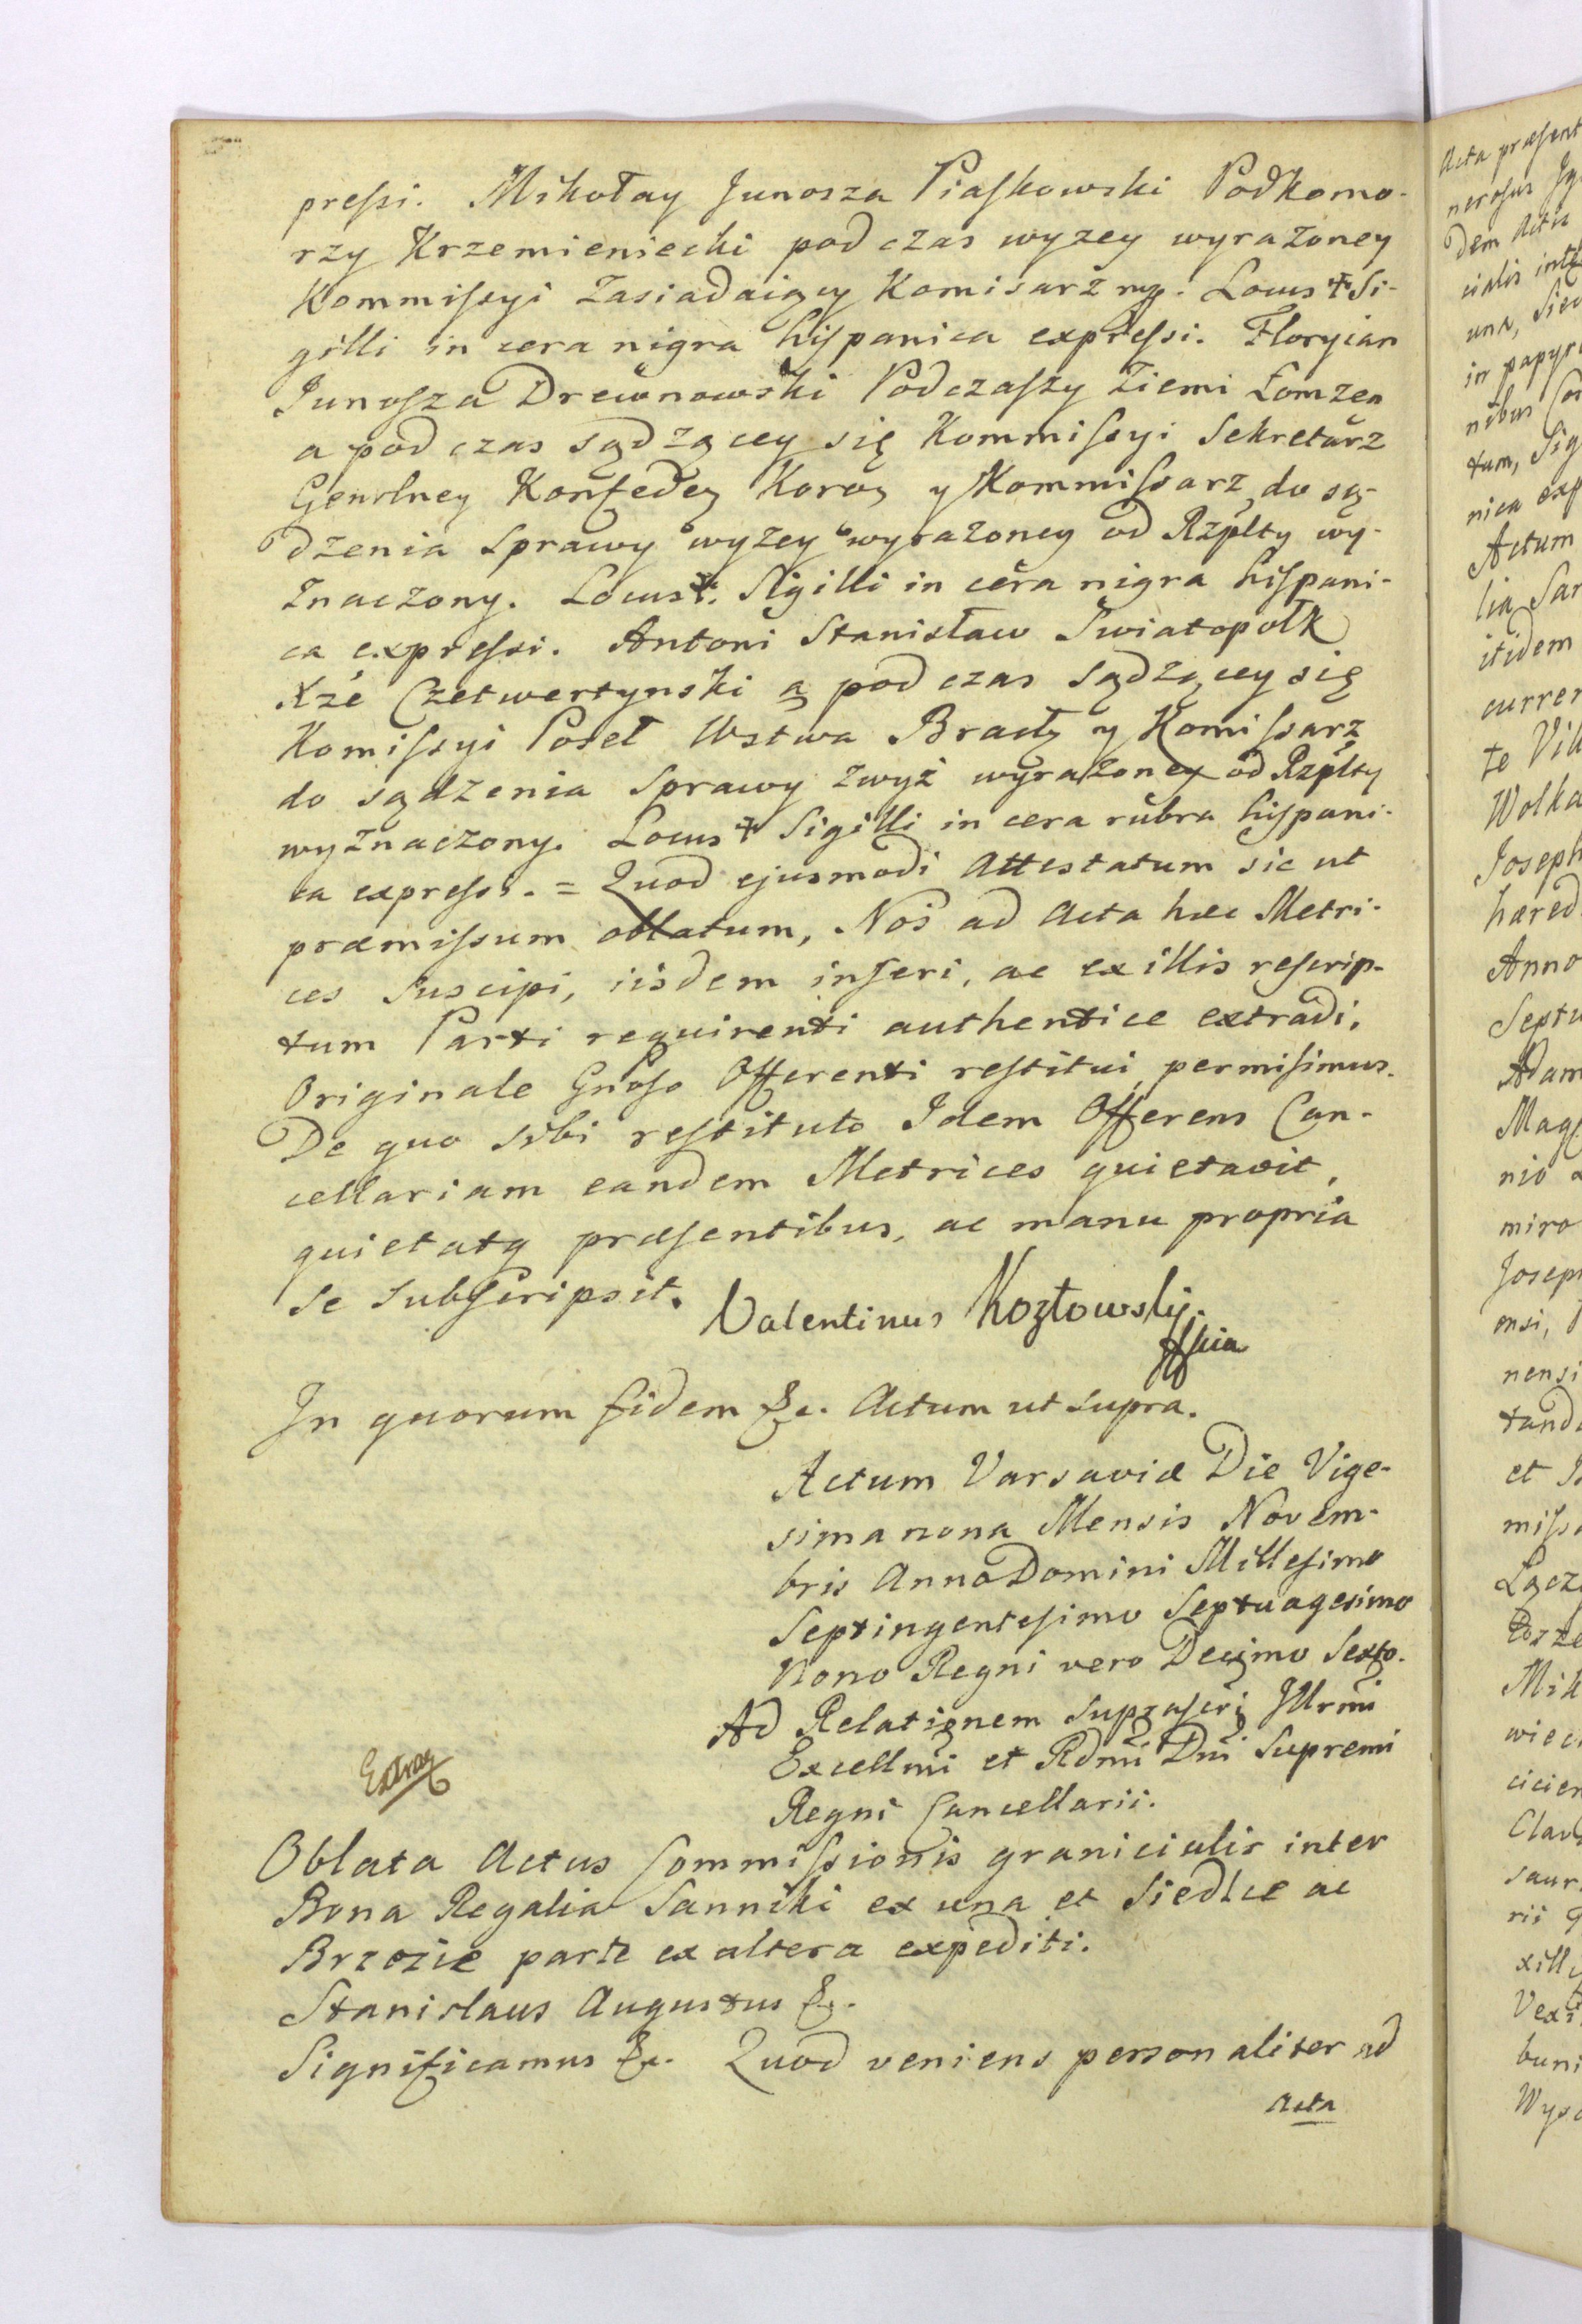 pressi. Mikołay Junosza Piaskowski Podkomo-
rzy Krzemieniecki pod czas wyzey wyrażoney
Kommissyi Zasiadaiący Komisarz mp. Locus ‡ Si-
gilli in cera nigra hispanica expressi. Florycian
Junosza Drewnowski Podczaszy Ziemi Łomzen
a pod czas sądzącey się Kommissyi Sekretarz
Genrlney Konfedey Koroy y Kommissarz do są-
dzenia Sprawy wyzey wyrażoney od Rzplty wy-
znaczony. Locus ‡. Sigilli in cera nigra hispani-
ca expressi. Antoni Stanisław Swiatopołk
Xże Czetwertynski a pod czas Sądzącey się
Komissyi Poseł Wstwa Bracły y Komissarz
do sądzenia Sprawy zwyż wyrażoney od Rzplty
wyznaczony. Locus ‡ Sigilli in cera rubra hispani-
ca expressi. = Quod ejusmodi Attestatum sic ut
præmissum oblatum, Nos ad Acta hæc Metri-
ces suscipi, iisdem inseri, ac ex illis rescrip-
tum Parti requirenti authentice extradi,
Originale Gnoso Offerenti restitui permisimus.
De quo sibi restituto Idem Offerens Can-
cellariam eandem Metrices quietavit,
quietatq præsentibus, ac manu propria
se subscripsit. Valentinus Kozłowsky.
In quorum fidem &c. Actum ut supra.
Actum Varsaviæ Die Vige-
sima nona Mensis Novem-
bris Anno Domini Millesimo
Septingentesimo Septuagesimo
Nono Regni vero Decimo Sexto.
Ad Relationem suprascri Illrmi
Excellmi et Rdmi Dni Supremi
Regni Cancellarii.
Oblata Actus Commissionis granicialis inter
Bona Regalia Sanniki ex una et Siedlce ac
Brzozie parte ex altera expediti.
Stanislaus Augustus &c.
Significamus &c. Quod veniens personaliter ad
Acta
Acta præsent
dem Actis
in papyr
Actum
itidem
Wolka
Joseph
hæred
Anno
Septu
Adam
Mag
miro
Joseph
ensi,
nensi
tand